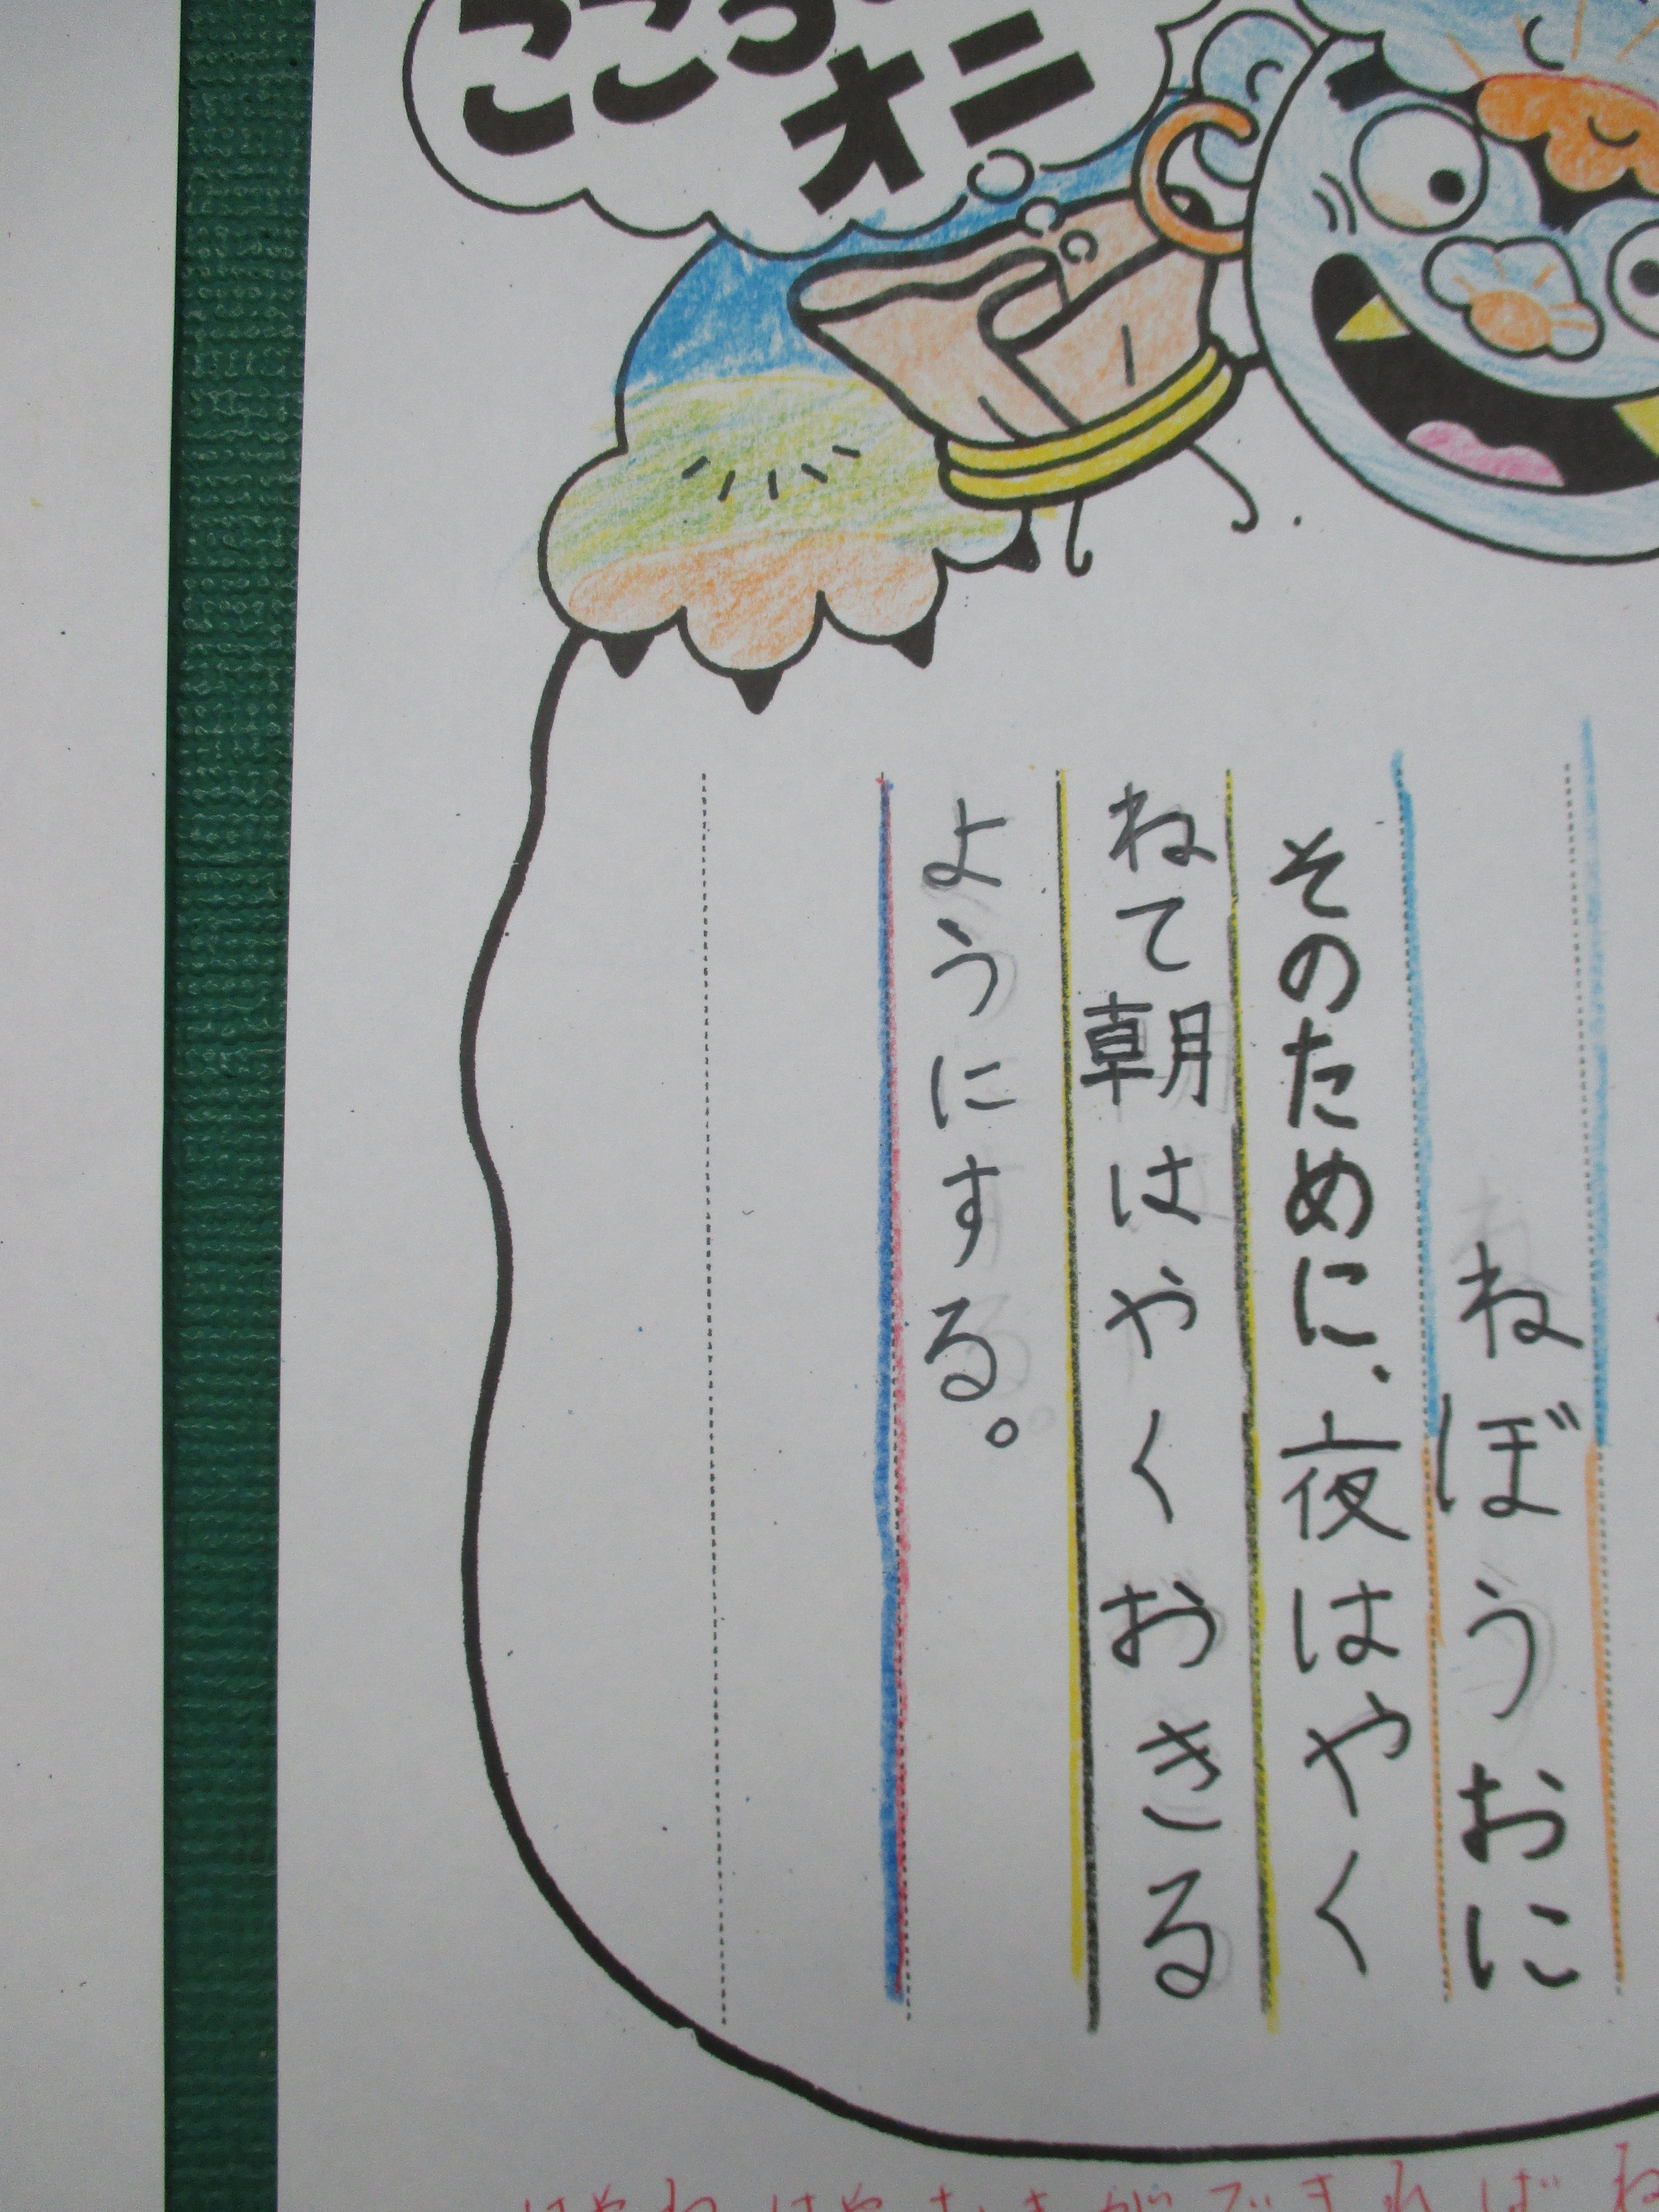 オニ
ねぼうおに
そのために、夜はやく
ねて朝はやくおきる
ようにする。